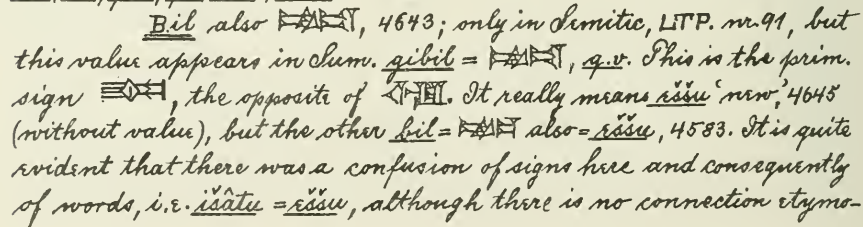 Bil also 4643; only in Semitic, LTP. nr. 91, but
this value appears in Sum. gibil = , q.v. This is the prim.
sign , the opposite of . It really means eššu 'new,' 4645
(without value), but the other bil = also = eššu, 4583. It is quite
evident that there was a confusion of signs here and consequently
of words, i.e. išâtu = eššu, although there is no connection etymo-